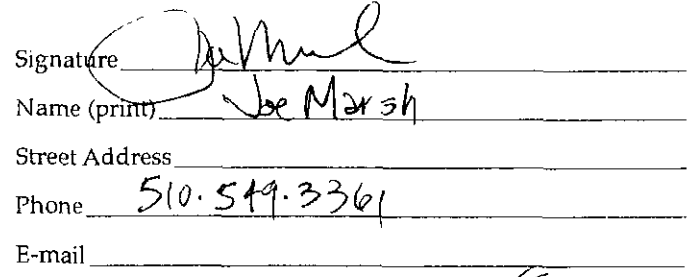 Signature
Name (print) Joe Marsh
Street Address
Phone 510.549.3361
E-mail